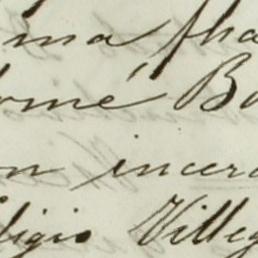 ma fha
omé Ba
on incer
ligio Villeg